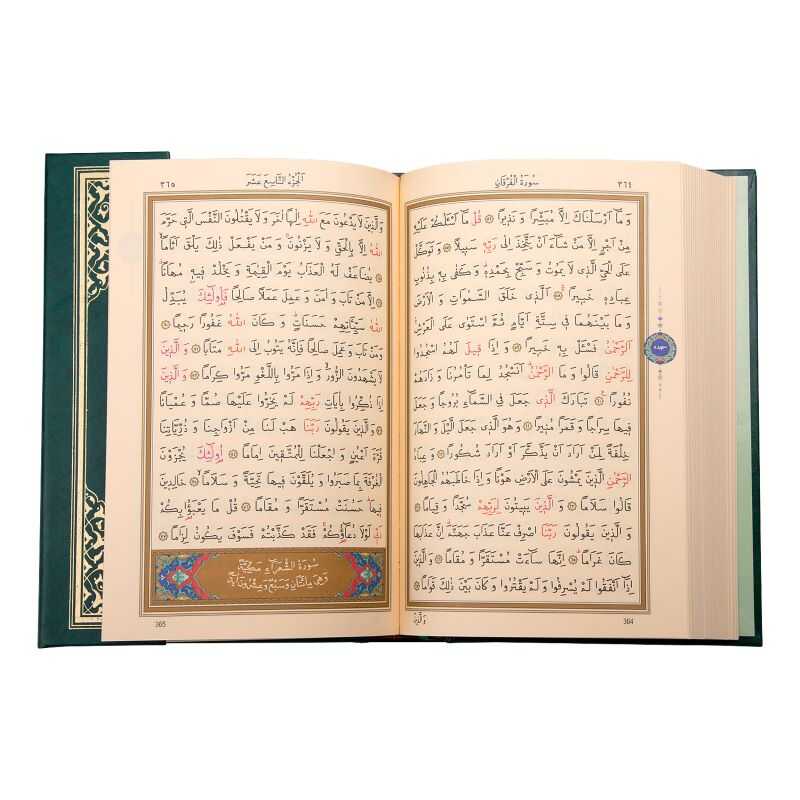 سُورَةُ الْفُرْقَانِ ٣٦٤
وَمَٓا اَرْسَلْنَاكَ اِلَّا مُبَشِّرًا وَ نَذِيرًا ۞ قُلْ مَٓا اَسْئَلُكُمْ عَلَيْهِ
مِنْ اَجْرٍ اِلَّا مَنْ شَٓاءَ اَنْ يَتَّخِذَ اِلٰى رَبِّهِ سَبِيلًا ۞ وَتَوَكَّلْ
عَلَى الْحَيِّ الَّذِي لَا يَمُوتُ وَ سَبِّحْ بِحَمْدِهِ وَ كَفٰى بِهِ بِذُنُوبِ
عِبَادِهِ خَبِيرًا ۞ اَلَّذِي خَلَقَ السَّمٰوَاتِ وَ الْاَرْضَ
وَ مَا بَيْنَهُمَا فِي سِتَّةِ اَيَّامٍ ثُمَّ اسْتَوٰى عَلَى الْعَرْشِ
اَلرَّحْمٰنُ فَسْئَلْ بِهِ خَبِيرًا ۞ وَ اِذَا قِيلَ لَهُمُ اسْجُدُوا
لِلرَّحْمٰنِ قَالُوا وَ مَا الرَّحْمٰنُ اَنَسْجُدُ لِمَا تَأْمُرُنَا وَ زَادَهُمْ
نُفُورًا ۞ تَبَارَكَ الَّذِي جَعَلَ فِي السَّمَٓاءِ بُرُوجًا وَ جَعَلَ
فِيهَا سِرَاجًا وَ قَمَرًا مُنِيرًا ۞ وَ هُوَ الَّذِي جَعَلَ الَّيْلَ وَ النَّهَارَ
خِلْفَةً لِمَنْ اَرَادَ اَنْ يَذَّكَّرَ اَوْ اَرَادَ شُكُورًا ۞ وَ عِبَادُ
الرَّحْمٰنِ الَّذِينَ يَمْشُونَ عَلَى الْاَرْضِ هَوْنًا وَ اِذَا خَاطَبَهُمُ الْجَاهِلُونَ
قَالُوا سَلَامًا ۞ وَ الَّذِينَ يَبِيتُونَ لِرَبِّهِمْ سُجَّدًا وَ قِيَامًا ۞
وَ الَّذِينَ يَقُولُونَ رَبَّنَا اصْرِفْ عَنَّا عَذَابَ جَهَنَّمَ اِنَّ عَذَابَهَا
كَانَ غَرَامًا ۞ اِنَّهَا سَٓاءَتْ مُسْتَقَرًّا وَ مُقَامًا ۞ وَ الَّذِينَ
اِذَٓا اَنْفَقُوا لَمْ يُسْرِفُوا وَ لَمْ يَقْتُرُوا وَ كَانَ بَيْنَ ذٰلِكَ قَوَامًا ۞
وَالَّذِينَ
364
سجده
اَلْجُزْءُ التَّاسِعَ عَشَرَ ٣٦٥
وَالَّذِينَ لَا يَدْعُونَ مَعَ اللّٰهِ اِلٰهًا اٰخَرَ وَ لَا يَقْتُلُونَ النَّفْسَ الَّتِي حَرَّمَ
اللّٰهُ اِلَّا بِالْحَقِّ وَ لَا يَزْنُونَ وَ مَنْ يَفْعَلْ ذٰلِكَ يَلْقَ اَثَامًا ۞
يُضَاعَفْ لَهُ الْعَذَابُ يَوْمَ الْقِيٰمَةِ وَ يَخْلُدْ فِيهِ مُهَانًا ۞
اِلَّا مَنْ تَابَ وَ اٰمَنَ وَ عَمِلَ عَمَلًا صَالِحًا فَاُولٰٓئِكَ يُبَدِّلُ
اللّٰهُ سَيِّاٰتِهِمْ حَسَنَاتٍ وَ كَانَ اللّٰهُ غَفُورًا رَحِيمًا ۞
وَمَنْ تَابَ وَ عَمِلَ صَالِحًا فَاِنَّهُ يَتُوبُ اِلَى اللّٰهِ مَتَابًا ۞ وَ الَّذِينَ
لَا يَشْهَدُونَ الزُّورَ وَ اِذَا مَرُّوا بِاللَّغْوِ مَرُّوا كِرَامًا ۞ وَ الَّذِينَ
اِذَا ذُكِّرُوا بِاٰيَاتِ رَبِّهِمْ لَمْ يَخِرُّوا عَلَيْهَا صُمًّا وَ عُمْيَانًا
۞ وَالَّذِينَ يَقُولُونَ رَبَّنَا هَبْ لَنَا مِنْ اَزْوَاجِنَا وَ ذُرِّيَّاتِنَا
قُرَّةَ اَعْيُنٍ وَ اجْعَلْنَا لِلْمُتَّقِينَ اِمَامًا ۞ اُولٰٓئِكَ يُجْزَوْنَ
الْغُرْفَةَ بِمَا صَبَرُوا وَ يُلَقَّوْنَ فِيهَا تَحِيَّةً وَ سَلَامًا ۞ خَالِدِينَ
فِيهَا حَسُنَتْ مُسْتَقَرًّا وَ مُقَامًا ۞ قُلْ مَا يَعْبَؤُا بِكُمْ
رَبِّي لَوْلَا دُعَٓاؤُكُمْ فَقَدْ كَذَّبْتُمْ فَسَوْفَ يَكُونُ لِزَامًا ۞
سُورَةُ الشُّعَرَٓاءِ مَكِّيَّةٌ
وَهِيَ مِائَتَانِ وَسَبْعٌ وَعِشْرُونَ اٰيَةً
365